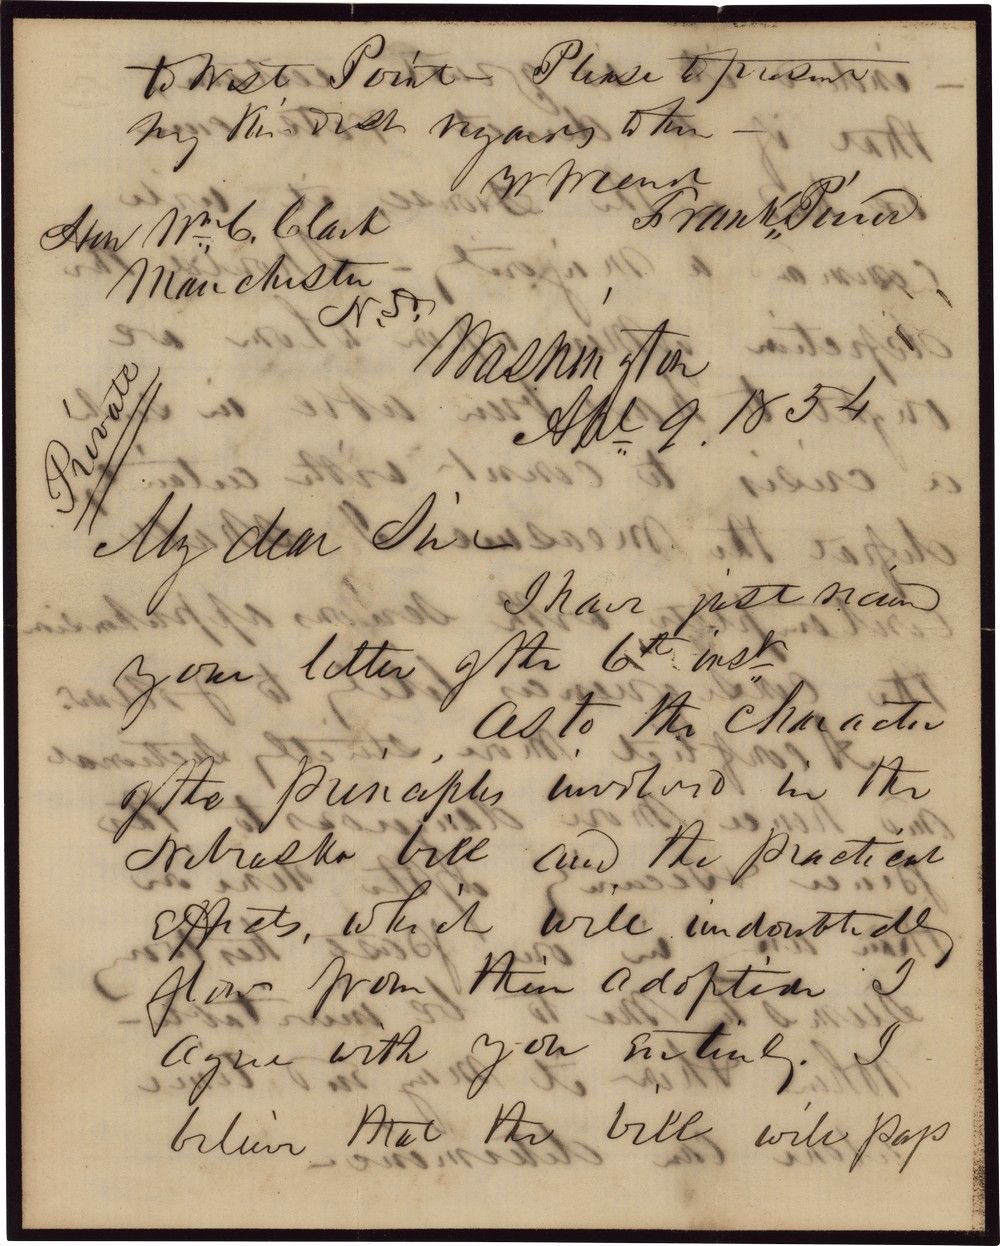 to West Point – Please to present
my kindest regards to her –
yr friend
Frank. Pierce
Hon Wm. C. Clark
Manchester
N. H.
Washington
Apl 9. 1854
Private
My dear Sir
I have just received
your letter of the 6th inst
As to the character
of the principles involved in the
Nebraska bill and the practical
effects, which will undoubtedly
flow from their adoption I
agree with you entirely. I
believe that the bill will pass